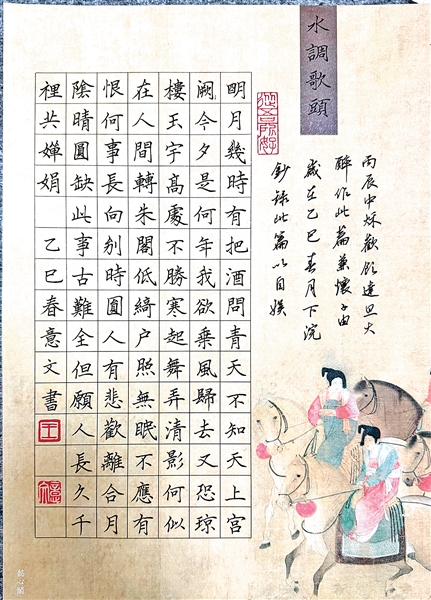 水調歌頭
從吾所好
丙辰中秌歡飲達旦大
醉作此篇兼懷子由
歲在乙巳春月下浣
鈔錄此篇以自娛
明月幾時有把酒問青天不知天上宮
闕今夕是何年我欲乘風歸去又恐瓊
樓玉宇高處不勝寒起舞弄清影何似
在人間轉朱閣低綺户照無眠不應有
恨何事長向别時圓人有悲歡離合月
陰晴圓缺此事古難全但願人長久千
裡共嬋娟 乙巳春意文書
王